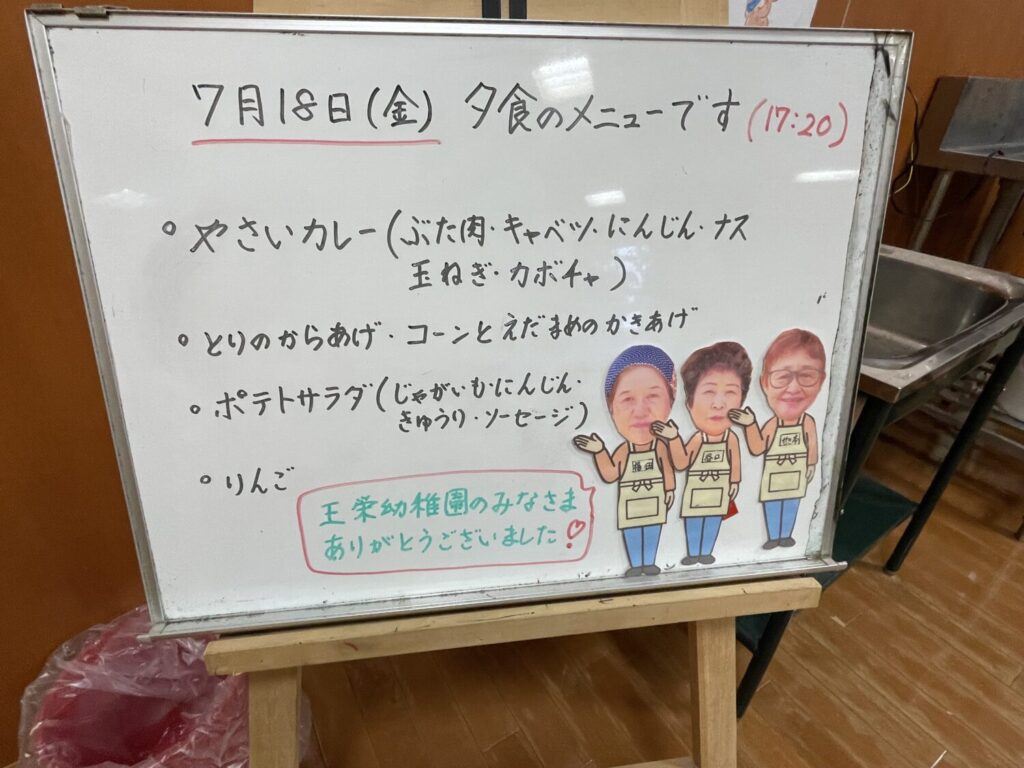 7月18日(金) 夕食のメニューです(17:20)
° やさいカレー(ぶた肉・キャベツ・にんじん・ナス
玉ねぎ・カボチャ)
° とりのからあげ・コーンとえだまめのかきあげ
・ポテトサラダ(じゃがいも・にんじん・
きゅうり・ソーセージ)
° りんご
王栄幼稚園のみなさま
ありがとうございました!